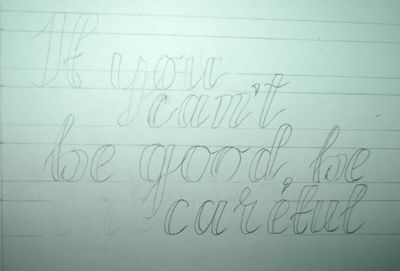 If you
can't
be good, be
careful